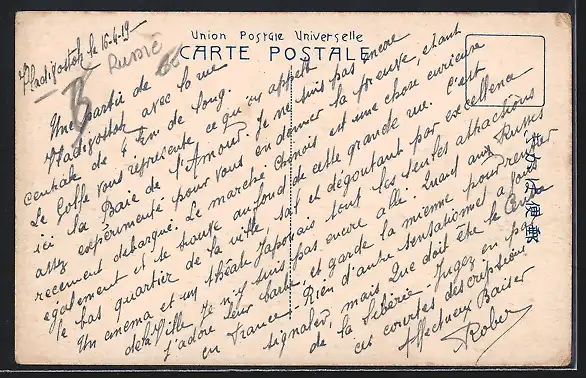 Vladivostok le 16-4-19
Russie
Union Postale Universelle
CARTE POSTALE
郵便はがき
Une partie de
Vladivostok avec la rue
centrale de 4 Km de long.
Le Golfe vous représente ce qu'on appelle
ici la Baie de l'Amour. Je ne suis pas encore
assez expérimenté pour vous en donner la preuve, étant
récemment débarqué. Le marché Chinois est une chose curieuse
également et se trouve au fond de cette grande rue. C'est
le bas quartier de la ville sale et dégoutant par excellence
Un cinema et un théâtre Japonais sont les seules attractions
de la Ville. Je n'y suis pas encore allé. Quand aux Russes
j'adore leur barbe, et garde la mienne pour rentrer
en France. Rien d'autre sensationnel à vous
signaler, mais que doit être le Centre
de la Sibérie. Jugez en par
ces courtes descriptions
Affectueux Baiser
Robert